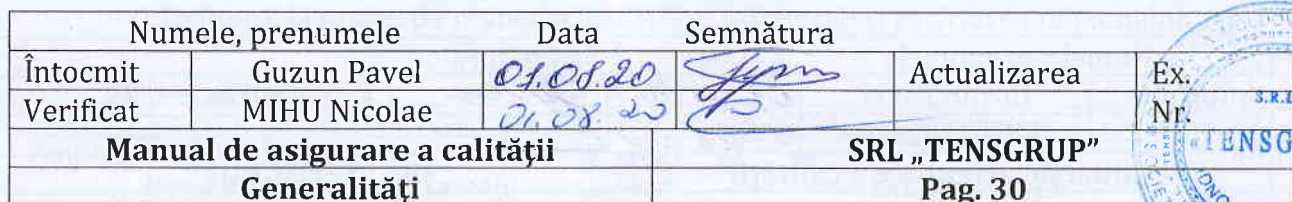 Numele, prenumele Data Semnătura
Întocmit Guzun Pavel 01.08.20 Actualizarea Ex.
Verificat MIHU Nicolae 01.08.20 Nr.
Manual de asigurare a calităţii SRL „TENSGRUP”
Generalităţi Pag. 30
S.R.L
«TENSG